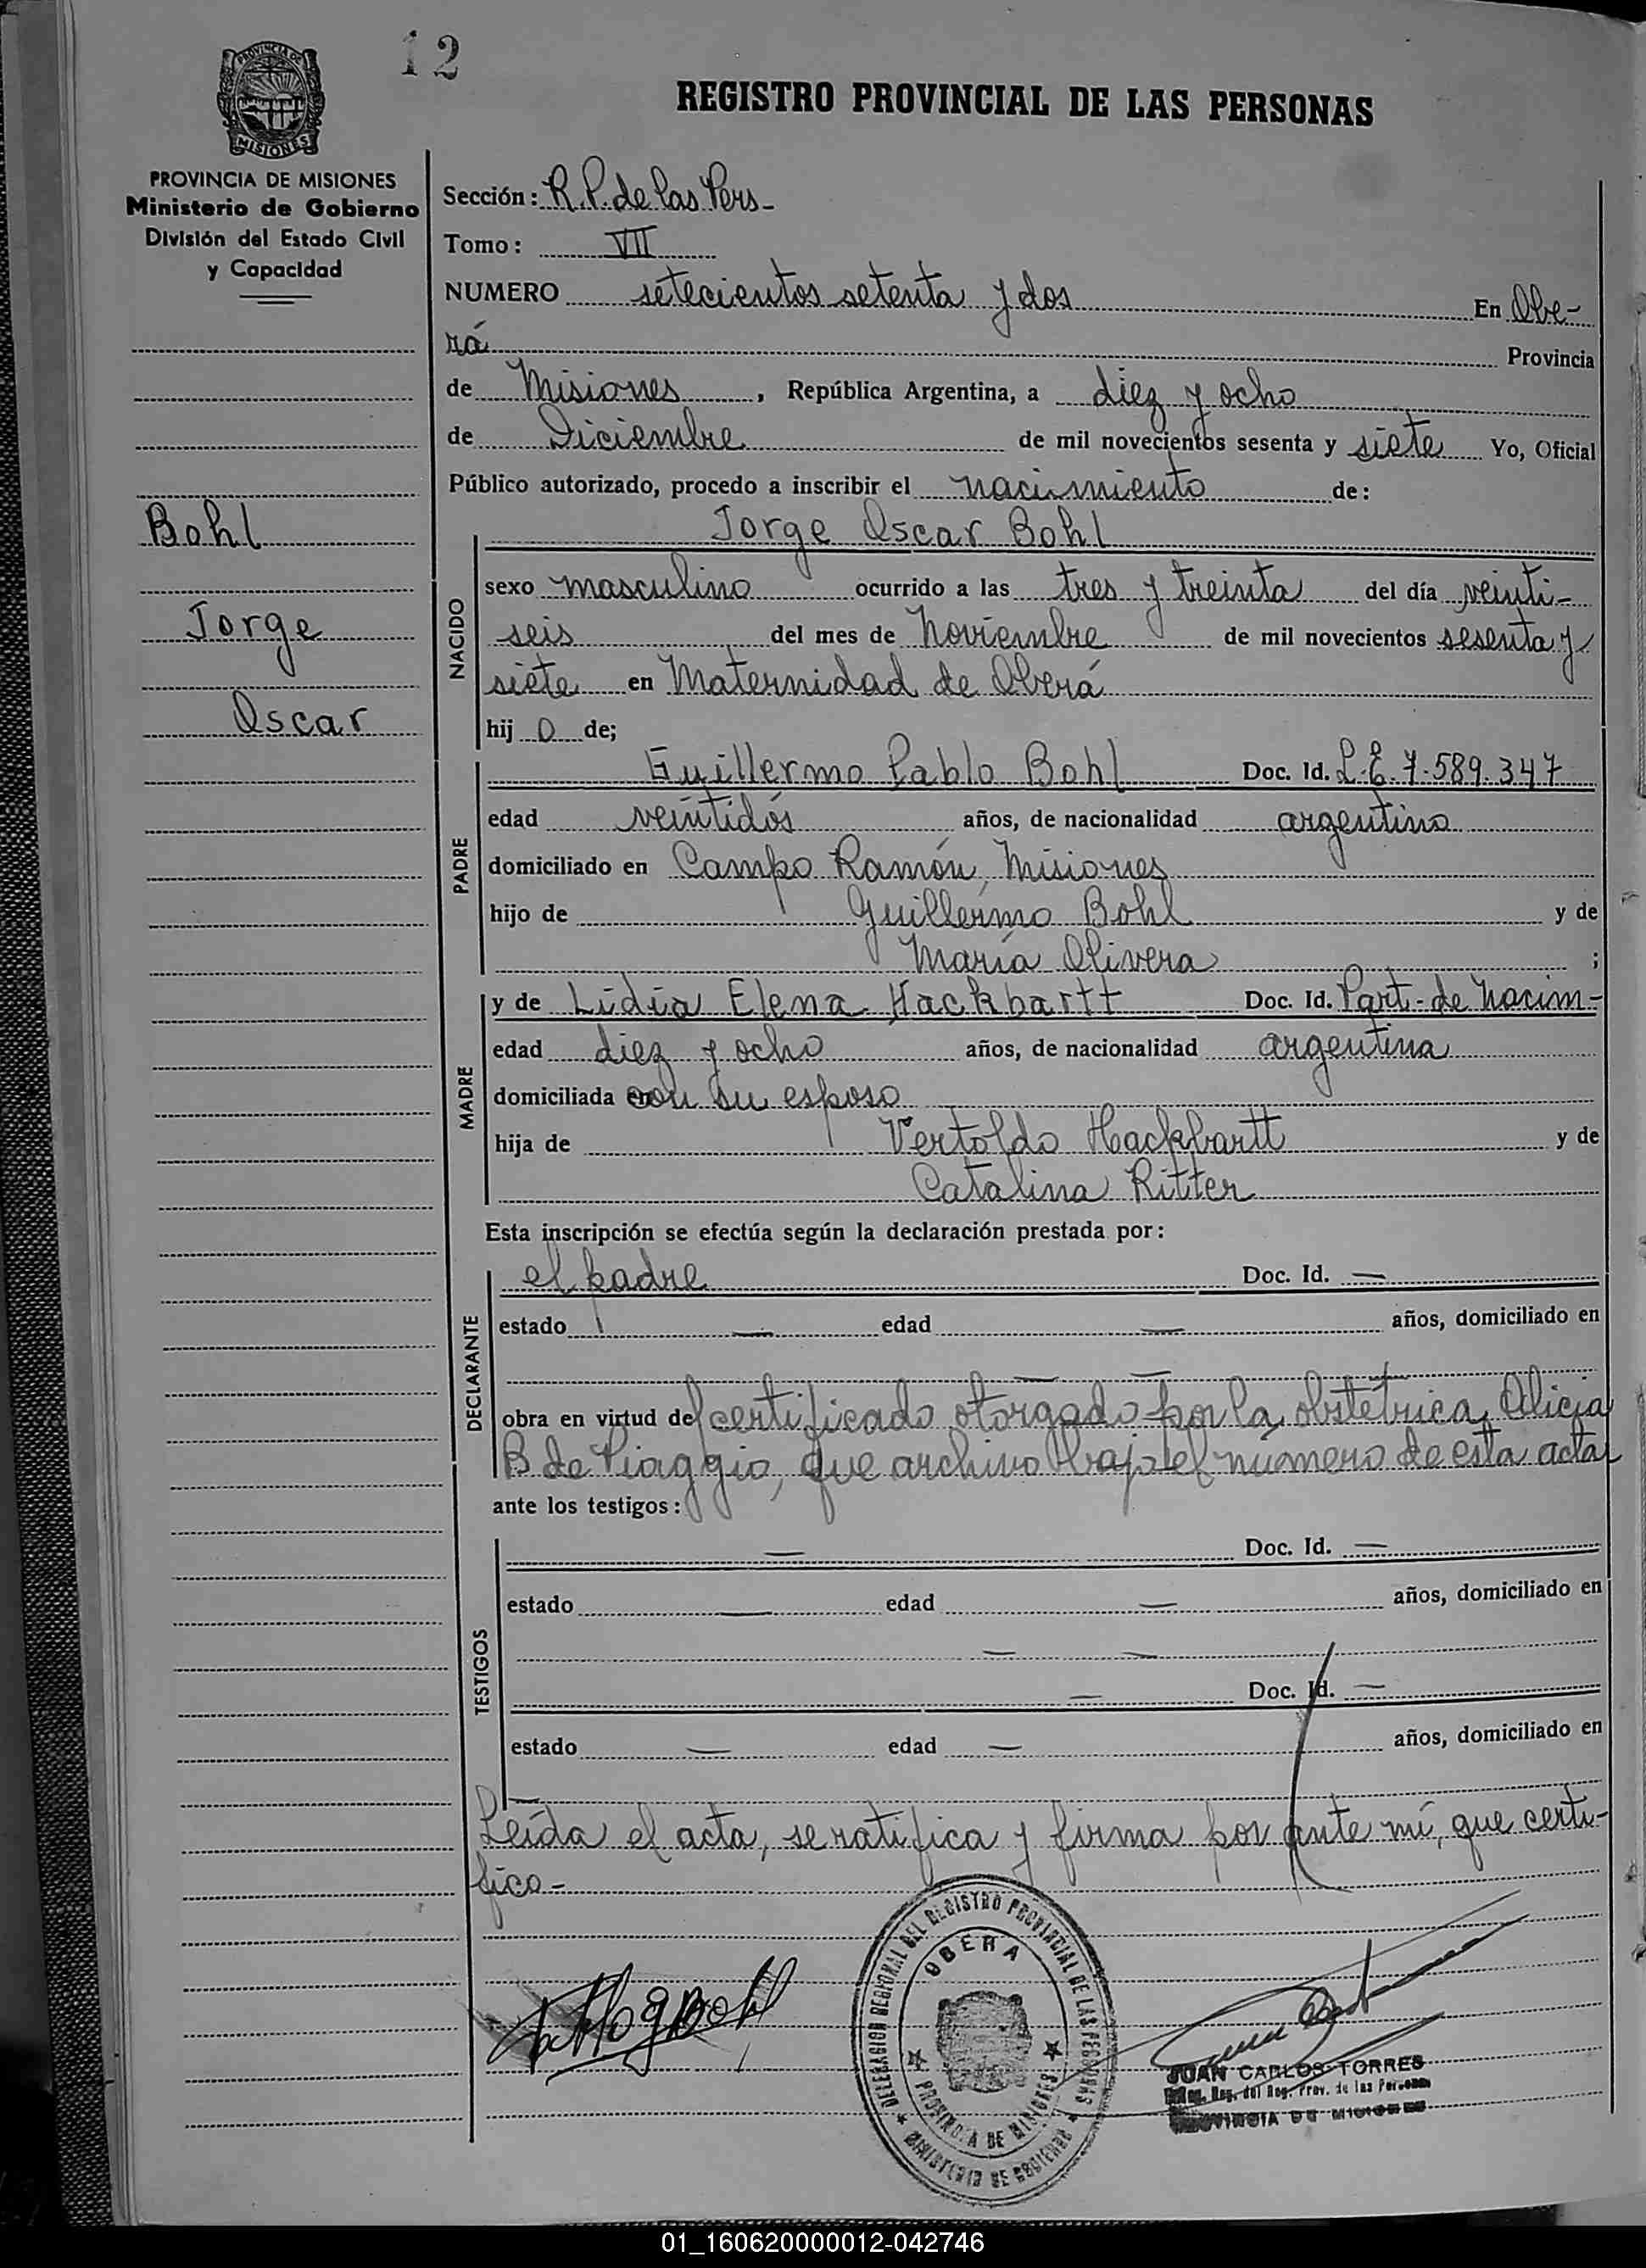 12
PROVINCIA DE
MISIONES
REGISTRO PROVINCIAL DE LAS PERSONAS
PROVINCIA DE MISIONES
Ministerio de Gobierno
División del Estado Civil
y Capacidad
Bohl
Jorge
Oscar
Sección: R.P. de las Pers-
Tomo: VII
NUMERO setecientos setenta y dos En Obe-
rá Provincia
de Misiones, República Argentina, a diez y ocho
de Diciembre de mil novecientos sesenta y siete Yo, Oficial
Público autorizado, procedo a inscribir el nacimiento de:
Jorge Oscar Bohl
NACIDO
sexo masculino ocurrido a las tres y treinta del día veinti-
seis del mes de Noviembre de mil novecientos sesenta y
siete en Maternidad de Oberá
hijo de;
PADRE
Guillermo Pablo Bohl Doc. Id. L.E. 7.589.347
edad veintidós años, de nacionalidad argentino
domiciliado en Campo Ramón, Misiones
hijo de Guillermo Bohl y de
María Olivera ;
MADRE
y de Lidia Elena Hackbartt Doc. Id. Part. de Nacim-
edad diez y ocho años, de nacionalidad argentina
domiciliada con su esposo
hija de Vertoldo Hackbartt y de
Catalina Ritter
Esta inscripción se efectúa según la declaración prestada por:
DECLARANTE
el padre Doc. Id. —
estado — edad — años, domiciliado en
— —
obra en virtud del certificado otorgado por la obstétrica, Alicia
B de Piaggio, que archivo bajo el número de esta acta
ante los testigos:
TESTIGOS
— Doc. Id. —
estado — edad — años, domiciliado en
— —
— Doc. Id. —
estado — edad — años, domiciliado en
—
Leída el acta, se ratifica y firma por ante mí, que certi-
fico-
DELEGACION REGIONAL DEL REGISTRO PROVINCIAL DE LAS PERSONAS
OBERA
PROVINCIA DE MISIONES
MINISTERIO DE GOBIERNO
JUAN CARLOS TORRES
Reg. del Reg. Prov. de las Personas
PROVINCIA DE MISIONES
01_160620000012-042746